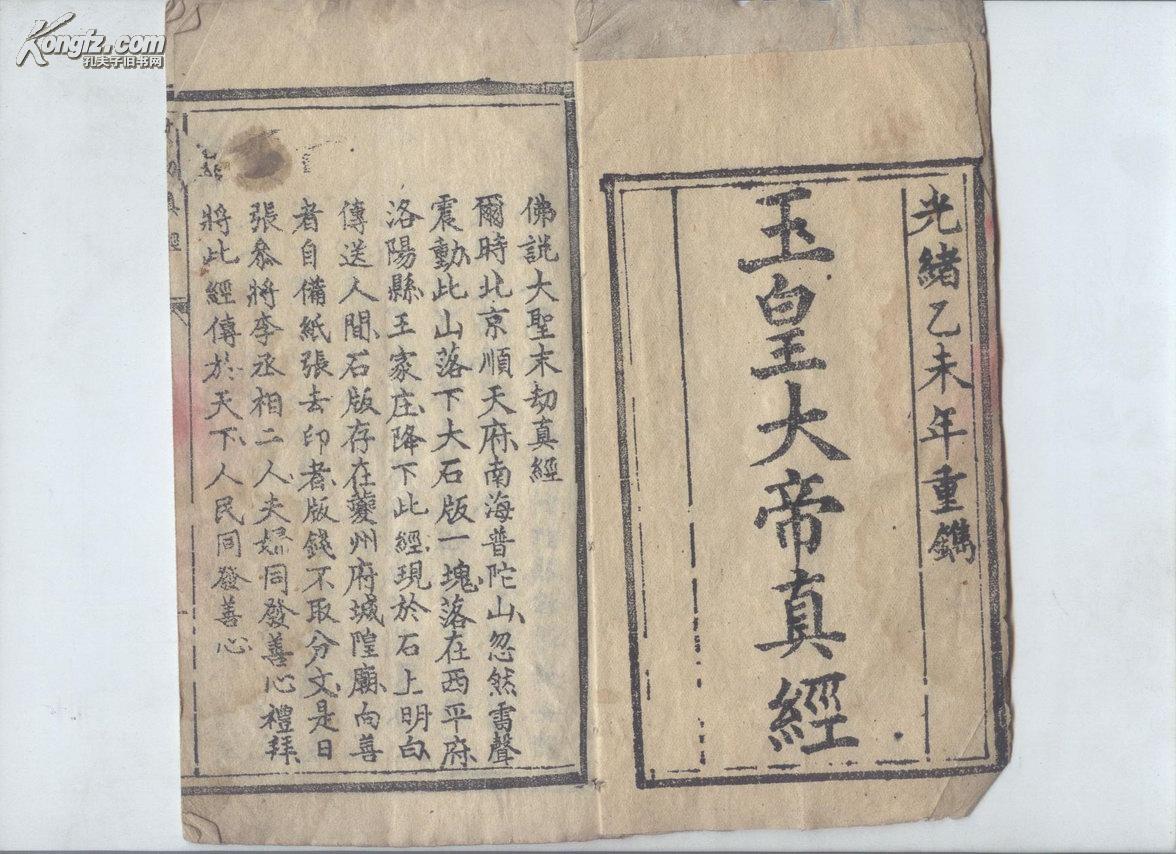 Kongfz.com
孔夫子旧书网
光緒乙未年重鐫
玉皇大帝真經
佛説大聖末劫真經
爾時北京順天府南海普陀山忽然雷聲
震動此山落下大石版一塊落在西平府
洛陽縣王家庄降下此經現於石上明白
傳送人間石版存在夔州府城隍廟向善
者自備紙張去印者版錢不取分文是日
張叅將李丞相二人夫婦同發善心禮拜
將此經傳於天下人民同發善心
真經